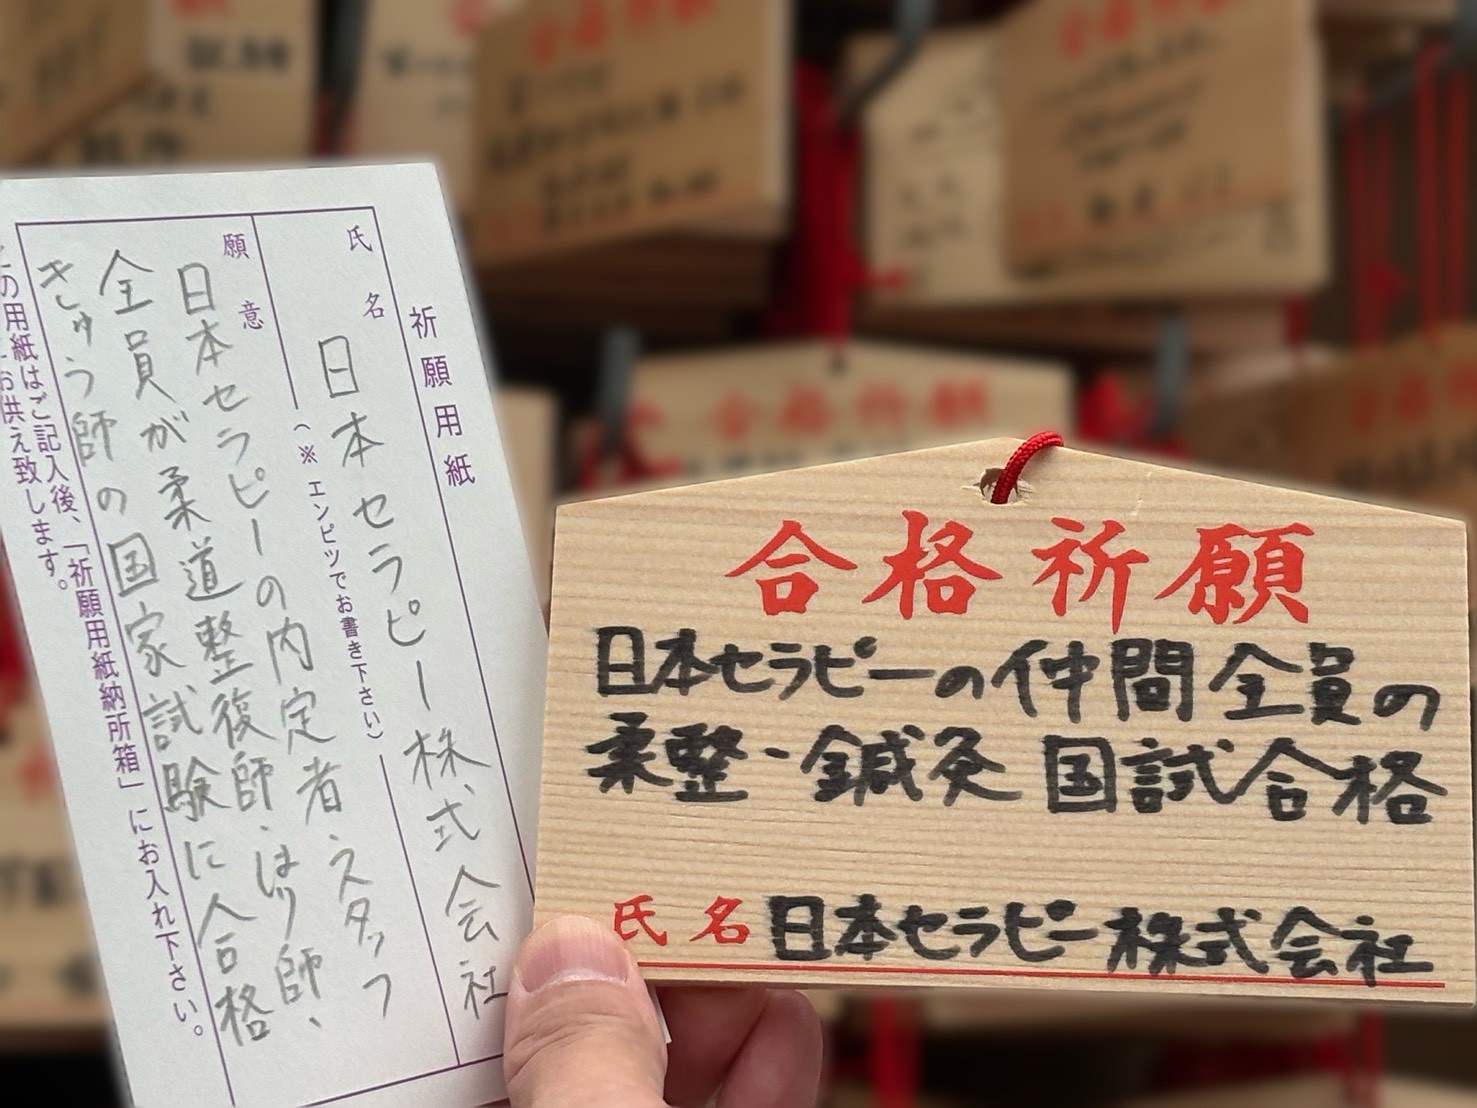 祈願用紙
氏名
日本セラピー株式会社
(※エンピツでお書き下さい)
願意
日本セラピーの内定者・スタッフ
全員が柔道整復師・はり師、
きゅう師の国家試験に合格
この用紙はご記入後、「祈願用紙納所箱」にお入れ下さい。
お供え致します。
合格祈願
日本セラピーの仲間全員の
柔整・鍼灸 国試合格
氏名 日本セラピー株式会社